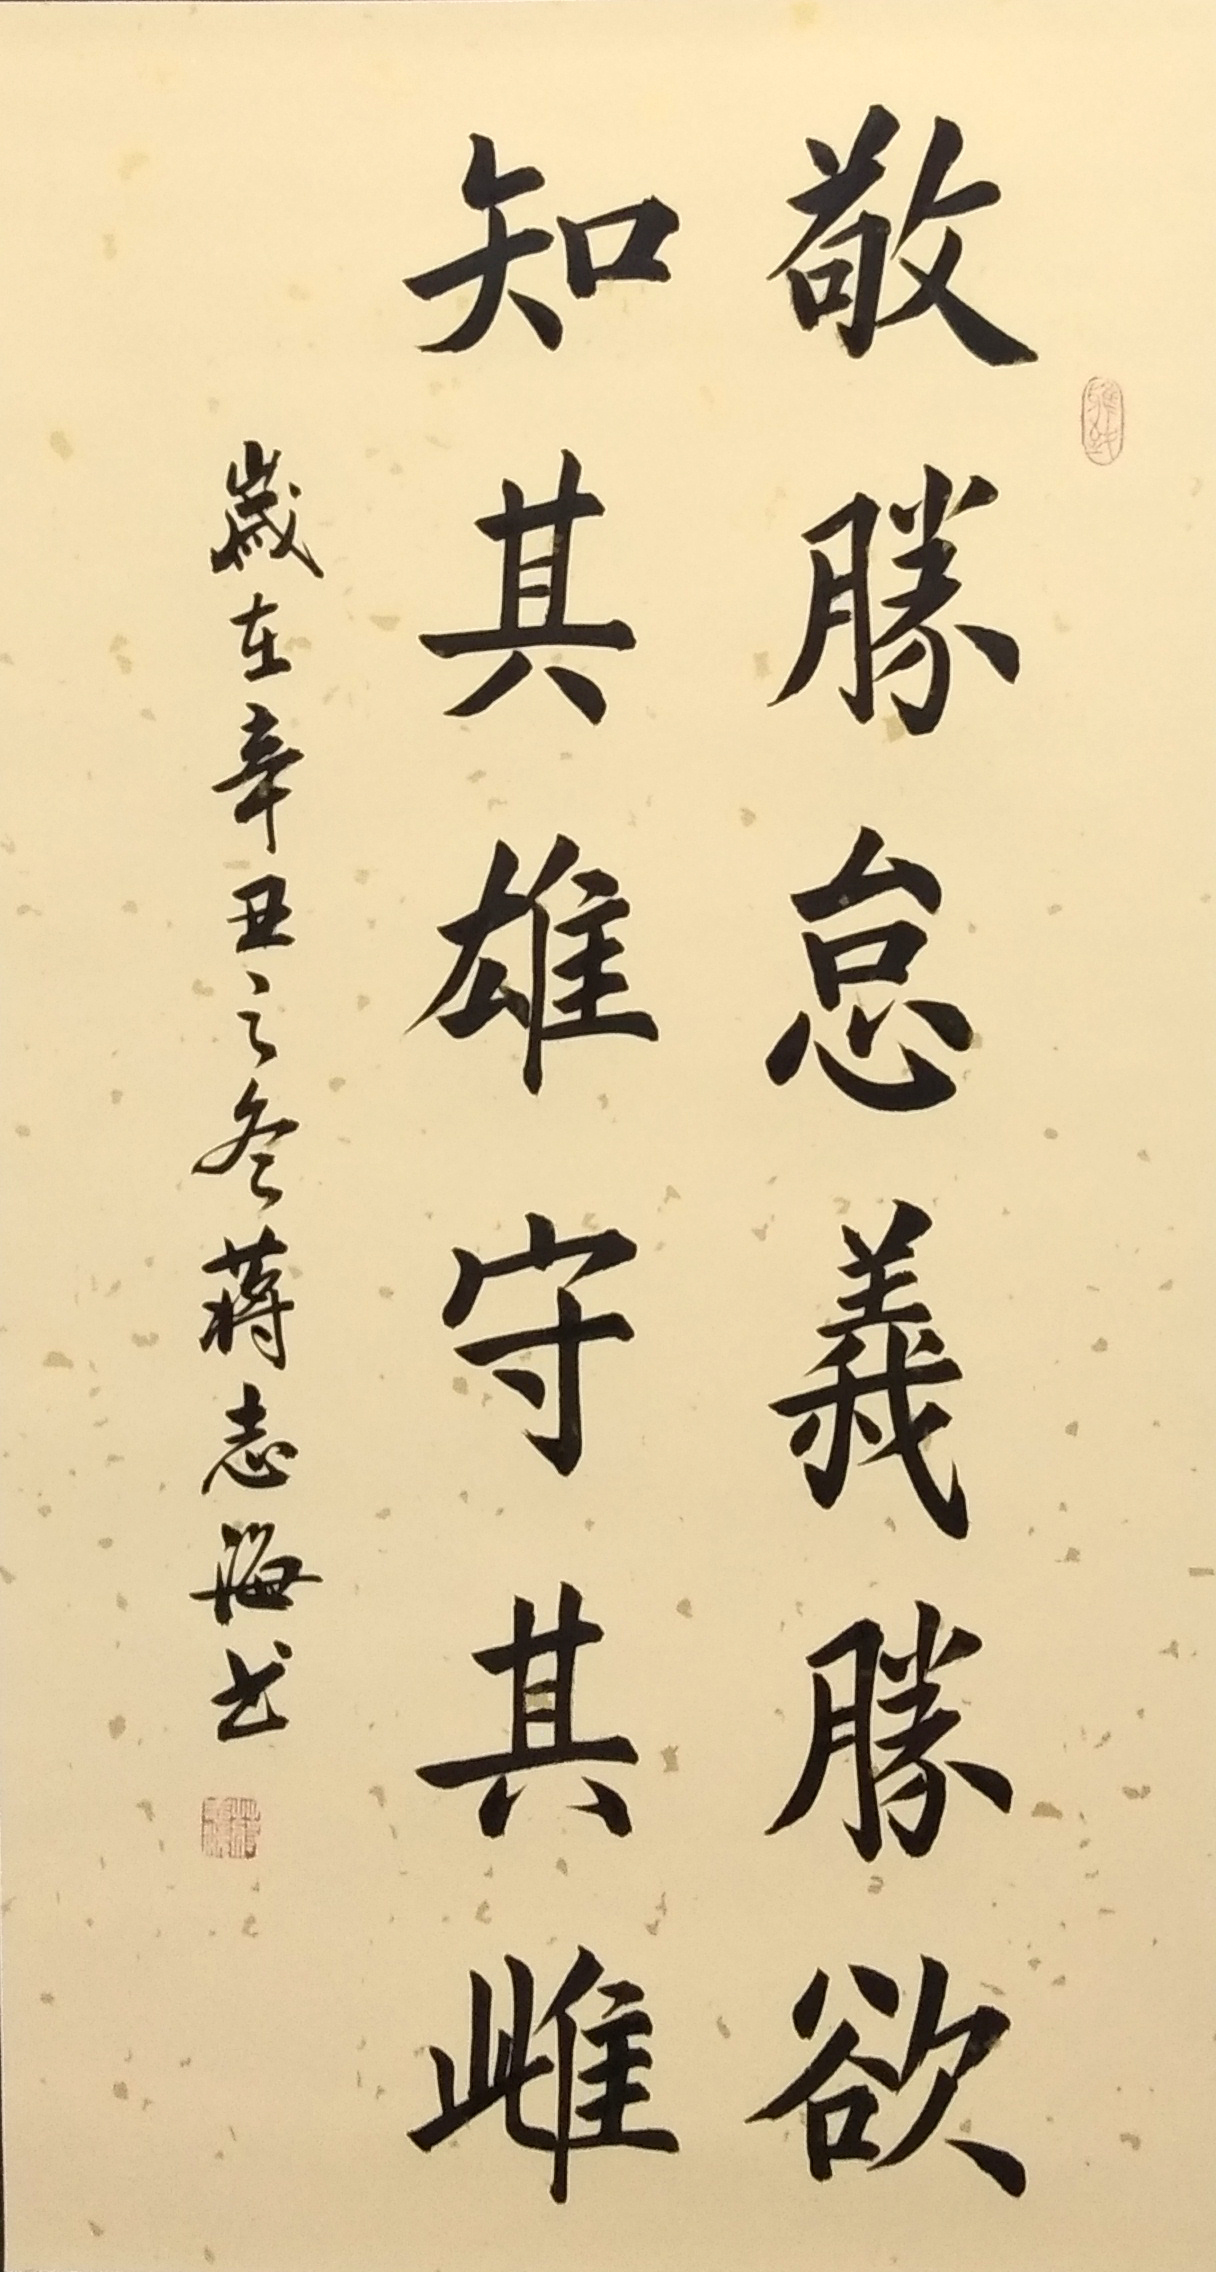 敬勝怠義勝欲
知其雄守其雌
歲在辛丑之冬蔣志海书